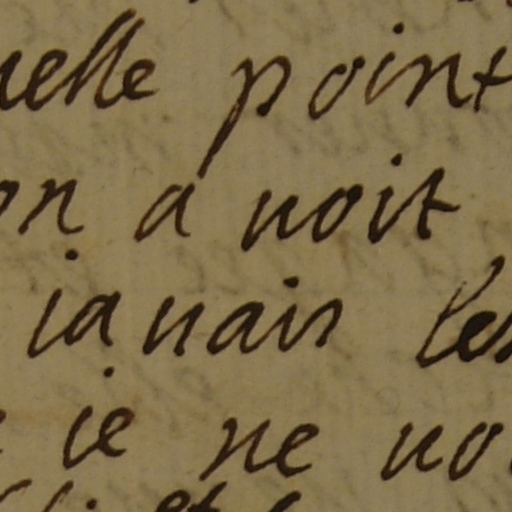 uelle point
on a uoit
iauais les
ie ne uo